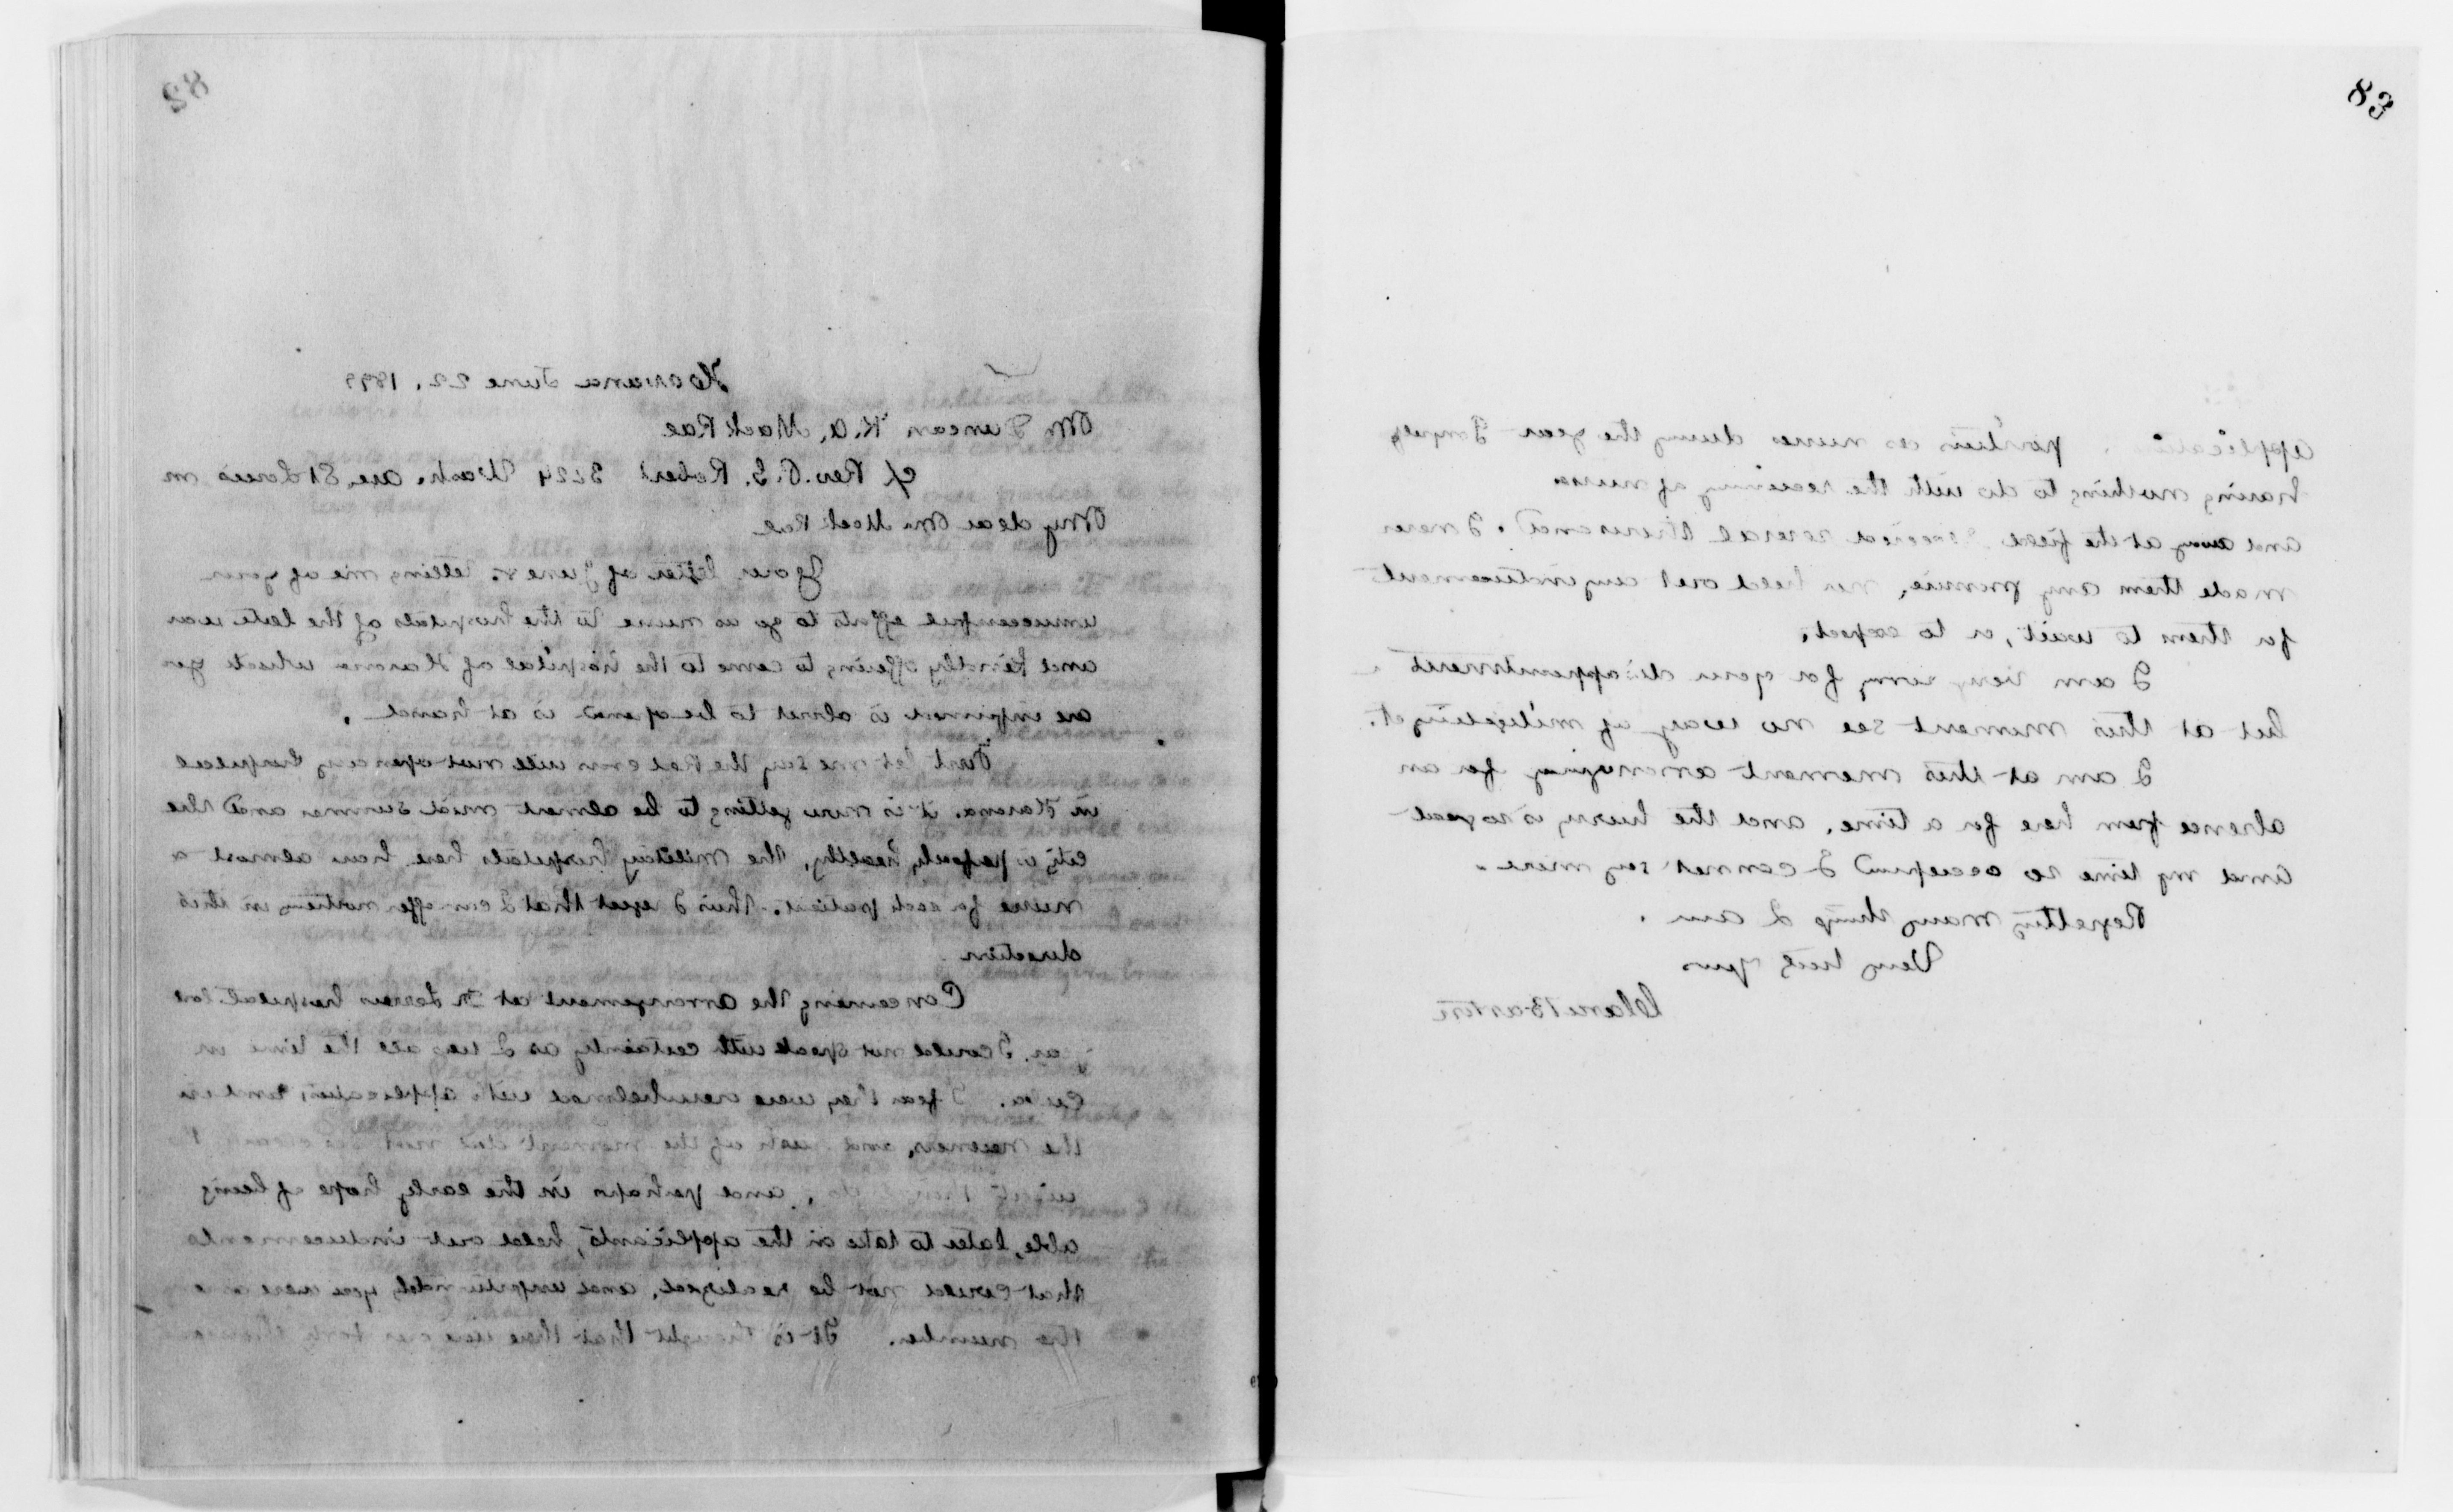 82
Havana June 22, 1899
Mr Duncan K. A. MackRae
c/ Rev. P. G. Robert 3224 Wash. Ave, St Louis M
My dear Mr MackRae
Your letter of June telling me of your
unsuccessful efforts to go as nurse to the hospitals of the late war
and kindly offering to come to the hospital of Havana which you
are informed is about to be opened is at hand.
First let me say the Red Cross will not open any hospital
in Havana. it is now getting to be almost mid summer and the
city is perfectly healthy, the military hospitals here have almost a
nurse for each patient. Thus I regret that I can offer nothing in this
direction.
Concerning the arrangement at Dr hospital last
year. I could not speak with certainty as I was all the time in
Cuba. I fear they were overwhelmed with applications, and in
the newness, and rush of the moment did not
might, and perhaps in the early hope of being
able, later to take on the applicants, held out inducements
that could not be realized, and unfortunately you were one
the number. It is thought that there were
83
applications positions as nurses during the year I myself
having nothing to do with the receiving of nurses
and away at the field received several thousand. I never
made them any promise, nor held out any inducement
for them to wait, or to expect.
I am very sorry for your disappointment
but at this moment see no way of mitigating it.
I am at this moment arranging for an
absence from here for a time, and the hurry is so great
and my time so occupied I cannot say more.
Regretting many things I am.
Very truly yours
Clara Barton